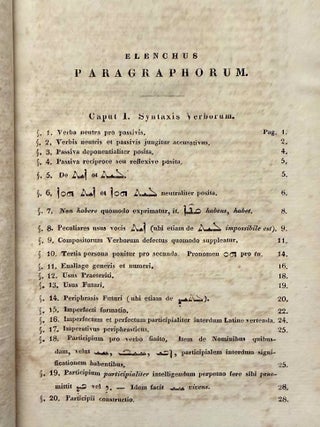 ELENCHUS
PARAGRAPHORUM.
Caput I. Syntaxis Verborum.
§. 1. Verba neutra pro passivis. Pag. 1.
§. 2. Verbis neutris et passivis jungitur accusativus. 2.
§. 3. Passiva deponentialiter posita. 4.
§. 4. Passiva reciproce seu reflexive posita. 5.
§. 5. De et 5.
§. 6. et neutraliter posita. 6.
§. 7. Non habere quomodo exprimatur, it. habens, habet. 8.
§. 8. Peculiares usus vocis (ubi etiam de impossibile est). 9.
§. 9. Compositorum Verborum defectus quomodo suppleatur. 11.
§. 10. Tertia persona ponitur pro secunda. Pronomen pro to. 14.
§. 11. Enallage generis et numeri. 16.
§. 12. Usus Praeteriti. 18.
§. 13. Usus Futuri. 19.
§. 14. Periphrasis Futuri (ubi etiam de 20.
§. 15. Imperfecti formatio. 22.
§. 16. Imperfectum et perfectum participialiter interdum Latine vertenda. 24.
§. 17. Imperativus periphrasticus. 26.
§. 18. Participium pro verbo finito, Item de Nominibus quibusdam, velut participialem interdum significationem habentibus. 26.
§. 19. Participium participialiter intelligendum perpetuo fere sibi praemittit vel — Idem facit vivens. 28.
§. 20. Participii constructio. 28.